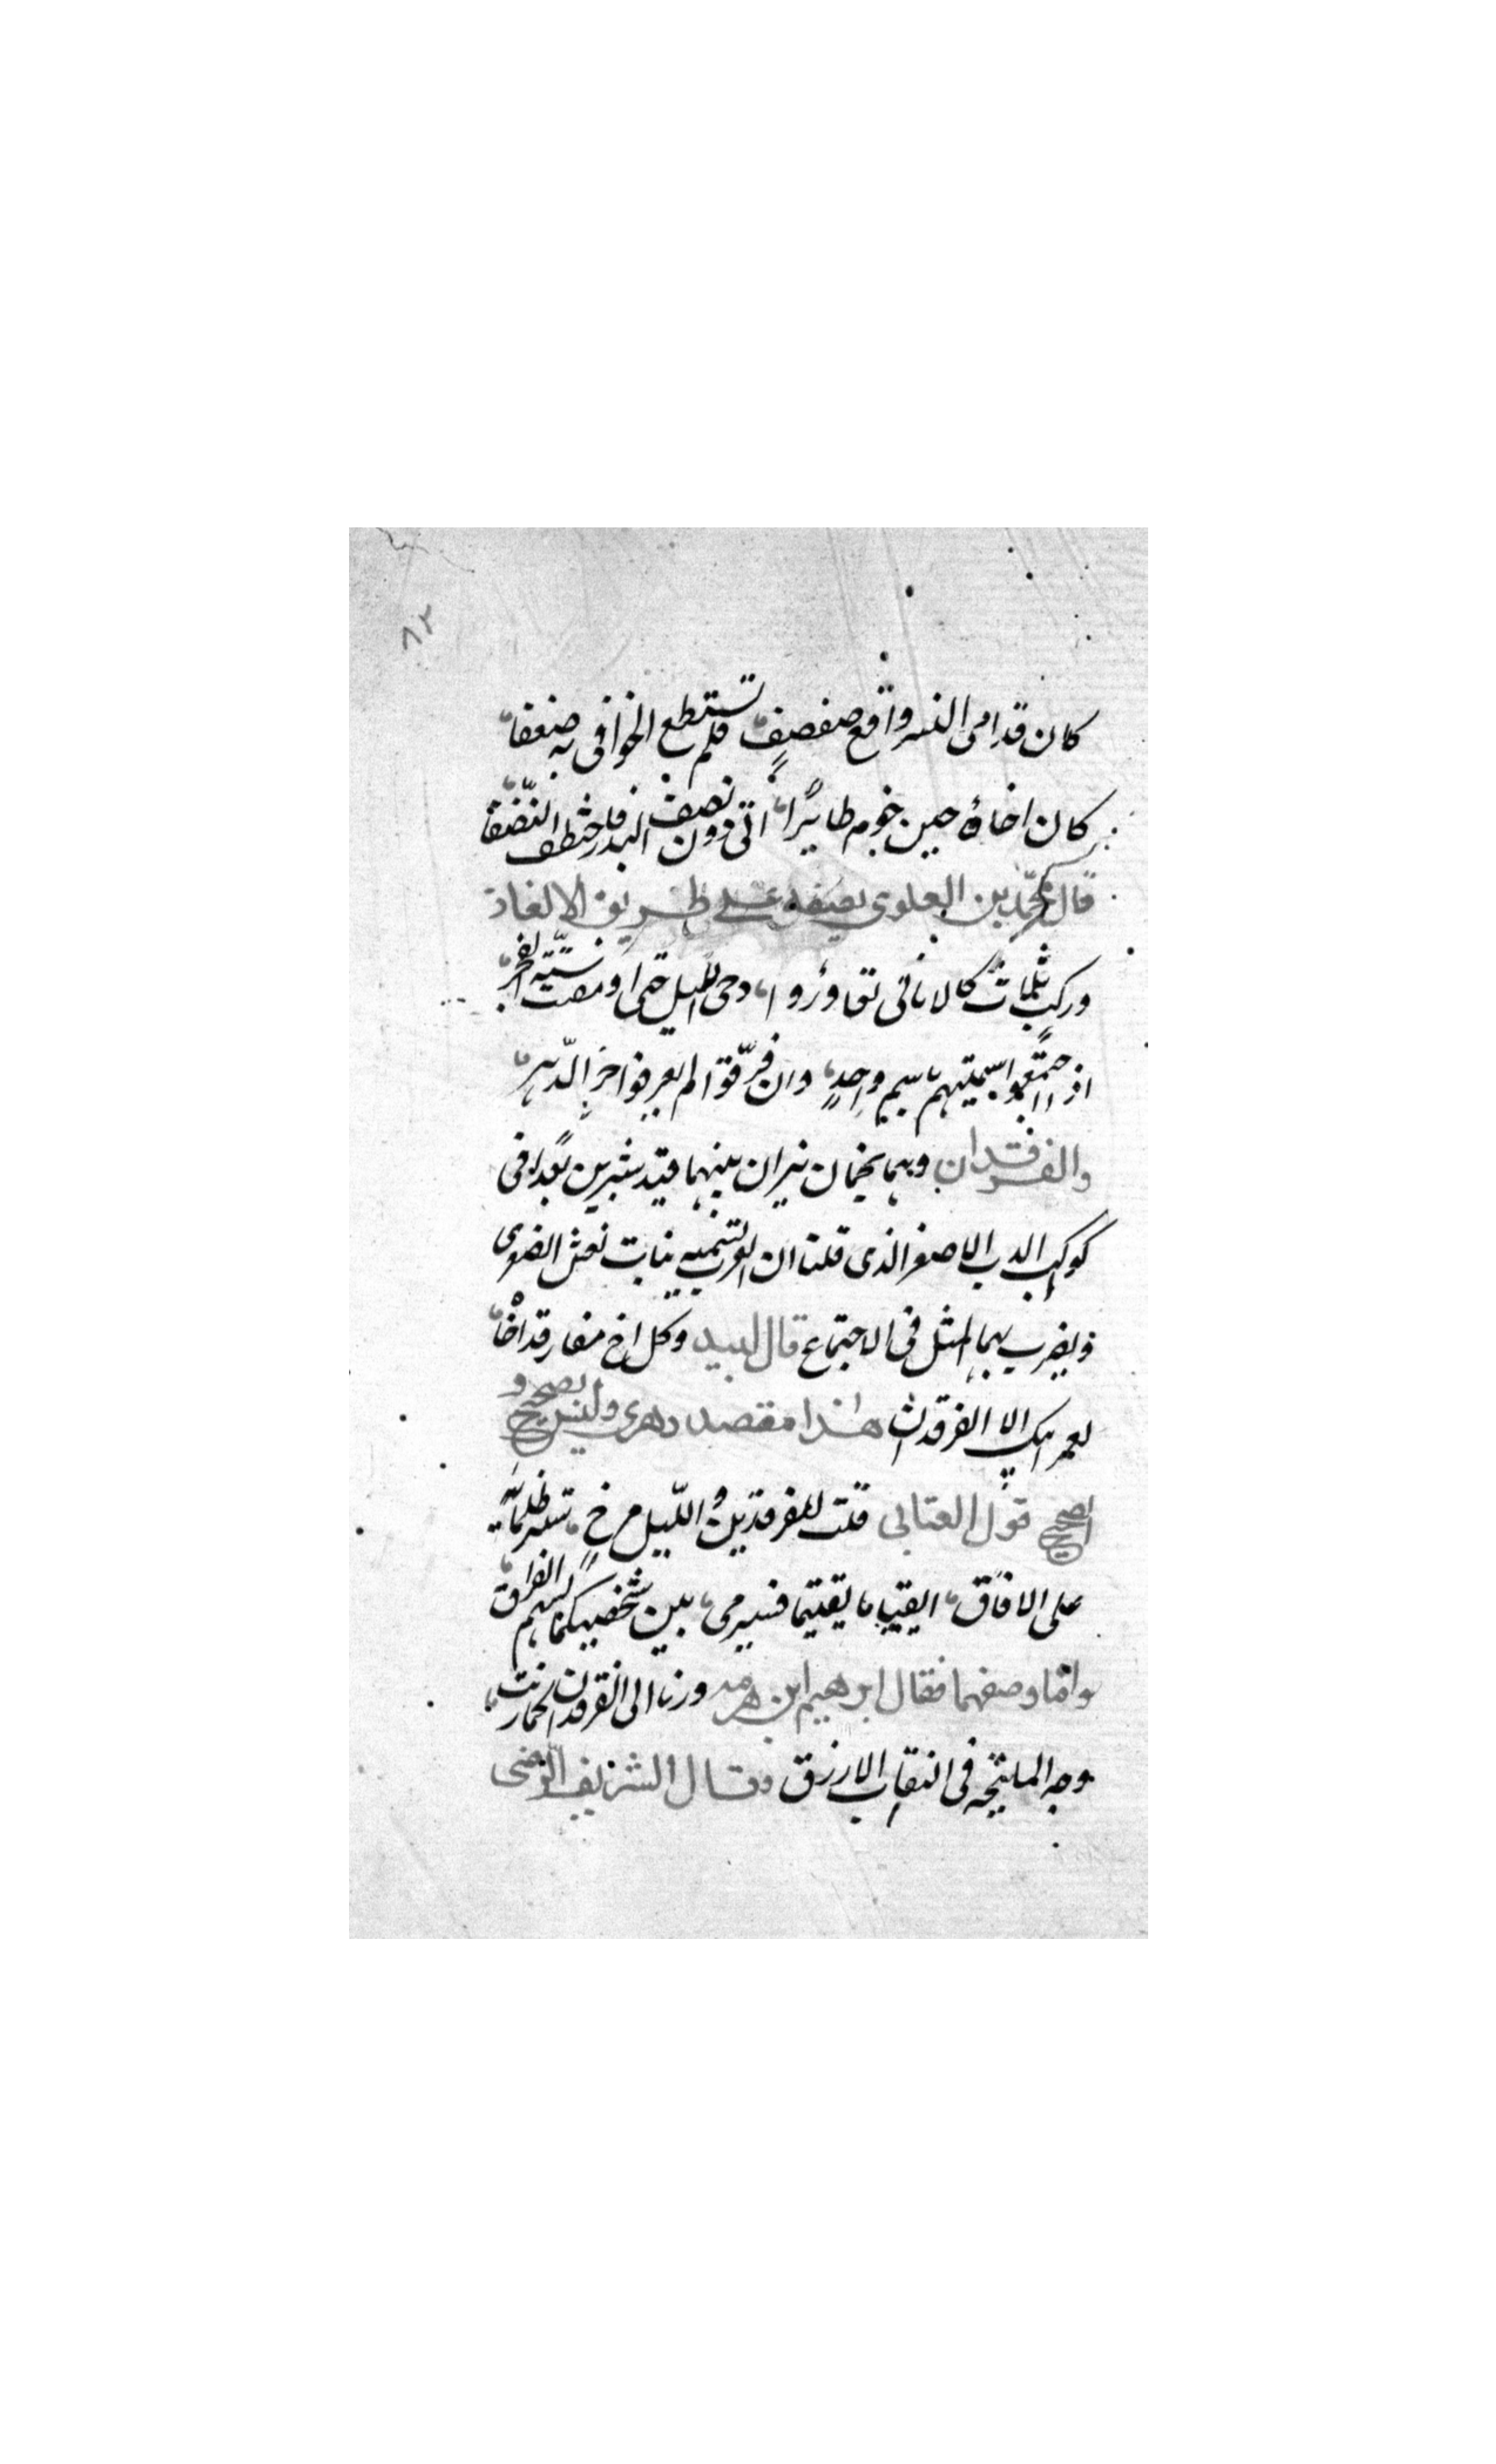 ٨٢
كان قدامى النسر واقع صفصفٍ فلم تستطع الخوافى به ضعفا
كان اخاه حين خوم طايرًا اتى دون نصف البدر فاختطف النّصفا
قال محمّد بن العلوى يصفه على طريق الالغاز
وركبٍ ثلاث كالاثافى تعاوروا دجى الليل حتى اومضت سنّة الفجر
اذا اجتمعوا سمّيتهم باسم واحدٍ وان فرّقوا لم يعرفوا اخر الدّهر
والفرقدان وهما نجمان نيران بينهما قيد شبرين بعدا فى
كوكب الدب الاصغر الذى قلنا ان العرب تسميه بنات نعش الصغرى
ويضرب بهما المثل فى الاجتماع قال لبيد وكل اخ مفارقه اخاه
لعمر ابيك الا الفرقدان هذا مقصد دهرى وليس بصحيح و
اصح قول العتابى قلت للفرقدين واللّيل مرخ ستر ظلمآئه
على الافاق ابقيا ما بقيتما فسيرمى بين شخصيكما بسهم الفراق
وامّا وصفهما فقال ابرهيم ابن هرمه ورنا الى الفرقدان كما رنت
وجه المليحه فى النقاب الازرق وقال الشريف الرّضى